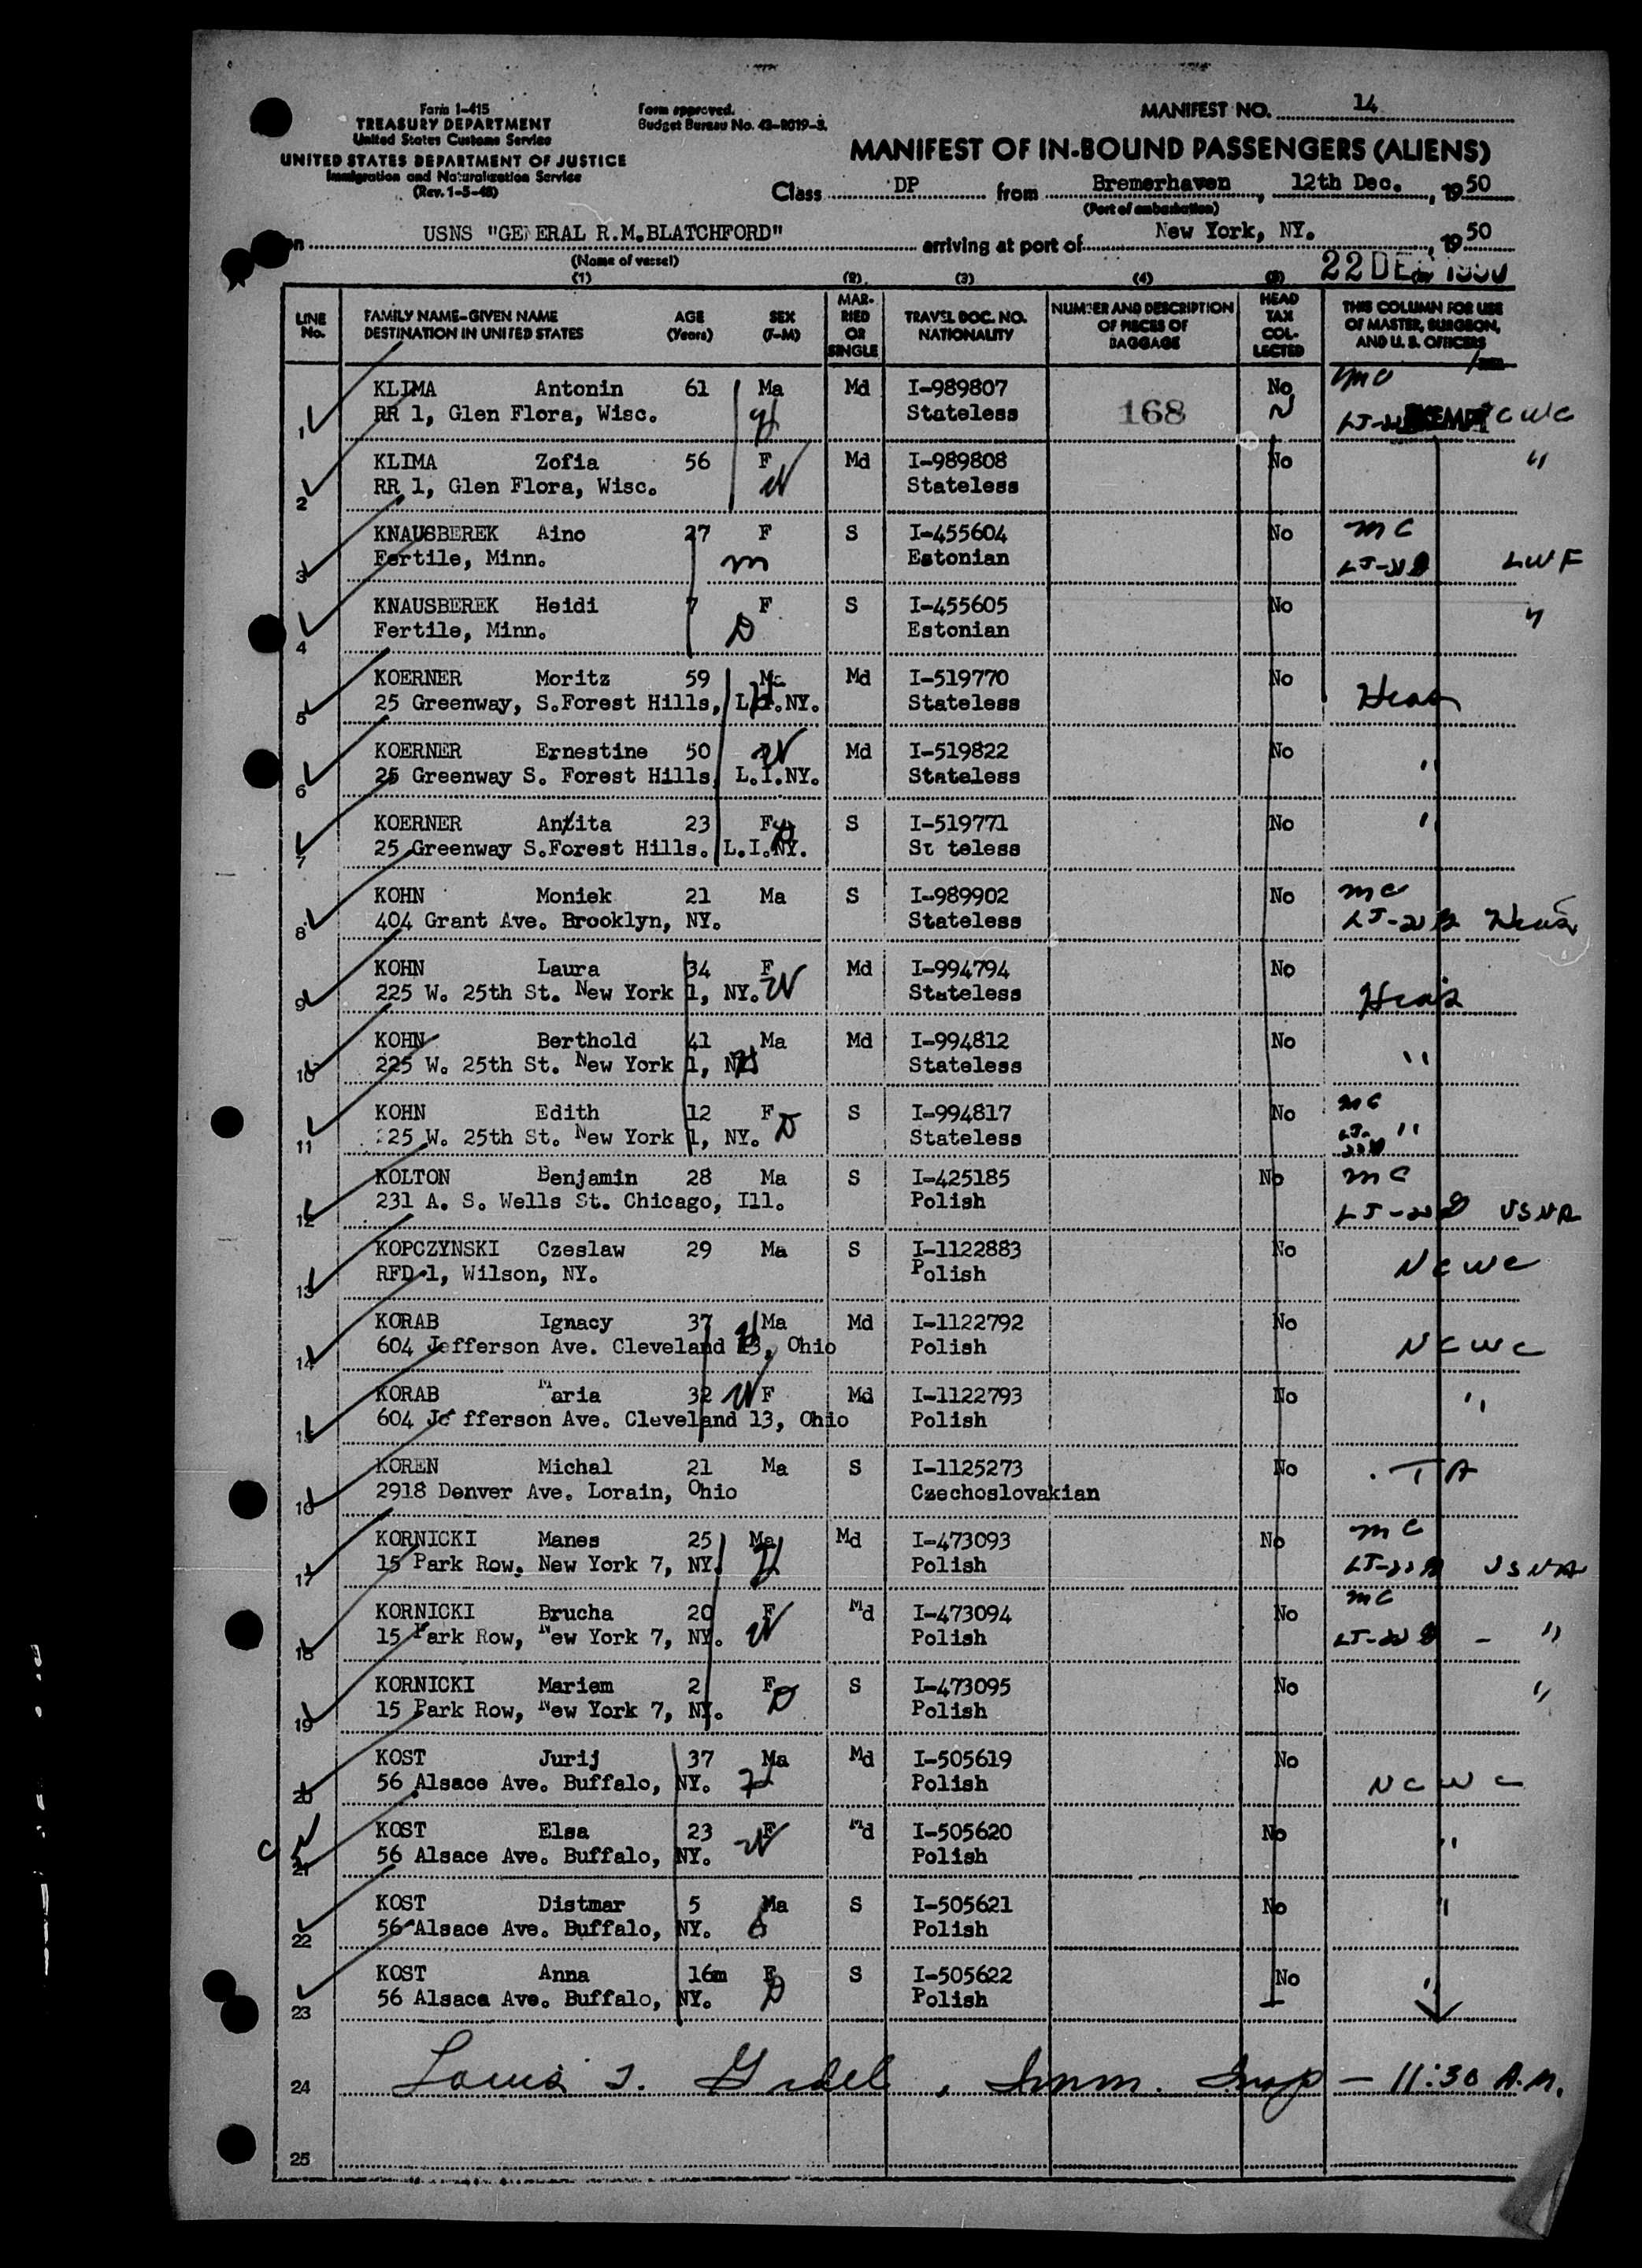 Form I-415
TREASURY DEPARTMENT
United States Customs Service
UNITED STATES DEPARTMENT OF JUSTICE
Immigration and Naturalization Service
(Rev. 1-5-48)
Form approved.
Budget Bureau No. 43-R019-3.
MANIFEST NO. 14
MANIFEST OF IN-BOUND PASSENGERS (ALIENS)
Class DP from Bremerhaven, 12th Dec., 1950
(Port of embarkation)
on USNS "GENERAL R.M.BLATCHFORD" arriving at port of New York, NY., 1950
(Name of vessel)
22 DEC 1950
(1) (2) (3) (4) (5)
LINE No. FAMILY NAME-GIVEN NAME DESTINATION IN UNITED STATES AGE (Years) SEX (F-M) MARRIED OR SINGLE TRAVEL DOC. NO. NATIONALITY NUMBER AND DESCRIPTION OF PIECES OF BAGGAGE HEAD TAX COLLECTED THIS COLUMN FOR USE OF MASTER, SURGEON, AND U. S. OFFICERS
1 KLIMA Antonin 61 Ma Md I-989807 168 No MC
RR 1, Glen Flora, Wisc. H Stateless N CWC
2 KLIMA Zofia 56 F Md I-989808 No "
RR 1, Glen Flora, Wisc. W Stateless
3 KNAUSBEREK Aino 27 F S I-455604 No MC
Fertile, Minn. M Estonian LWF
4 KNAUSBEREK Heidi 7 F S I-455605 No "
Fertile, Minn. D Estonian
5 KOERNER Moritz 59 Ma Md I-519770 No Hias
25 Greenway, S.Forest Hills, L.I.NY. H Stateless
6 KOERNER Ernestine 50 W Md I-519822 No "
25 Greenway S. Forest Hills, L.I.NY. Stateless
7 KOERNER Anita 23 F D S I-519771 No "
25 Greenway S.Forest Hills. L.I.NY. St teless
8 KOHN Moniek 21 Ma S I-989902 No MC
404 Grant Ave. Brooklyn, NY. Stateless Hias
9 KOHN Laura 34 F Md I-994794 No
225 W. 25th St. New York 1, NY. W Stateless Hias
10 KOHN Berthold 41 Ma Md I-994812 No "
225 W. 25th St. New York 1, NY H Stateless
11 KOHN Edith 12 F D S I-994817 No MC
225 W. 25th St. New York 1, NY. Stateless "
12 KOLTON Benjamin 28 Ma S I-425185 No MC
231 A. S. Wells St. Chicago, Ill. Polish USNA
13 KOPCZYNSKI Czeslaw 29 Ma S I-1122883 No NCWC
RFD 1, Wilson, NY. Polish
14 KORAB Ignacy 37 H Ma Md I-1122792 No
604 Jefferson Ave. Cleveland 13, Ohio Polish NCWC
15 KORAB Maria 32 W F Md I-1122793 No "
604 Je fferson Ave. Cleveland 13, Ohio Polish
16 KOREN Michal 21 Ma S I-1125273 No
2918 Denver Ave. Lorain, Ohio Czechoslovakian
17 KORNICKI Manes 25 Ma Md I-473093 No MC
15 Park Row, New York 7, NY. H Polish USNA
18 KORNICKI Brucha 20 F Md I-473094 No MC
15 Park Row, New York 7, NY. W Polish "
19 KORNICKI Mariem 2 F D S I-473095 No "
15 Park Row, New York 7, NY. Polish
20 KOST Jurij 37 Ma Md I-505619 No
56 Alsace Ave. Buffalo, NY. H Polish NCWC
21 KOST Elsa 23 F Md I-505620 No "
56 Alsace Ave. Buffalo, NY. W Polish
22 KOST Distmar 5 Ma S I-505621 No "
56 Alsace Ave. Buffalo, NY. S Polish
23 KOST Anna 16m F S I-505622 No "
56 Alsace Ave. Buffalo, NY. D Polish
24 Imm. Insp — 11:30 A.M.
25